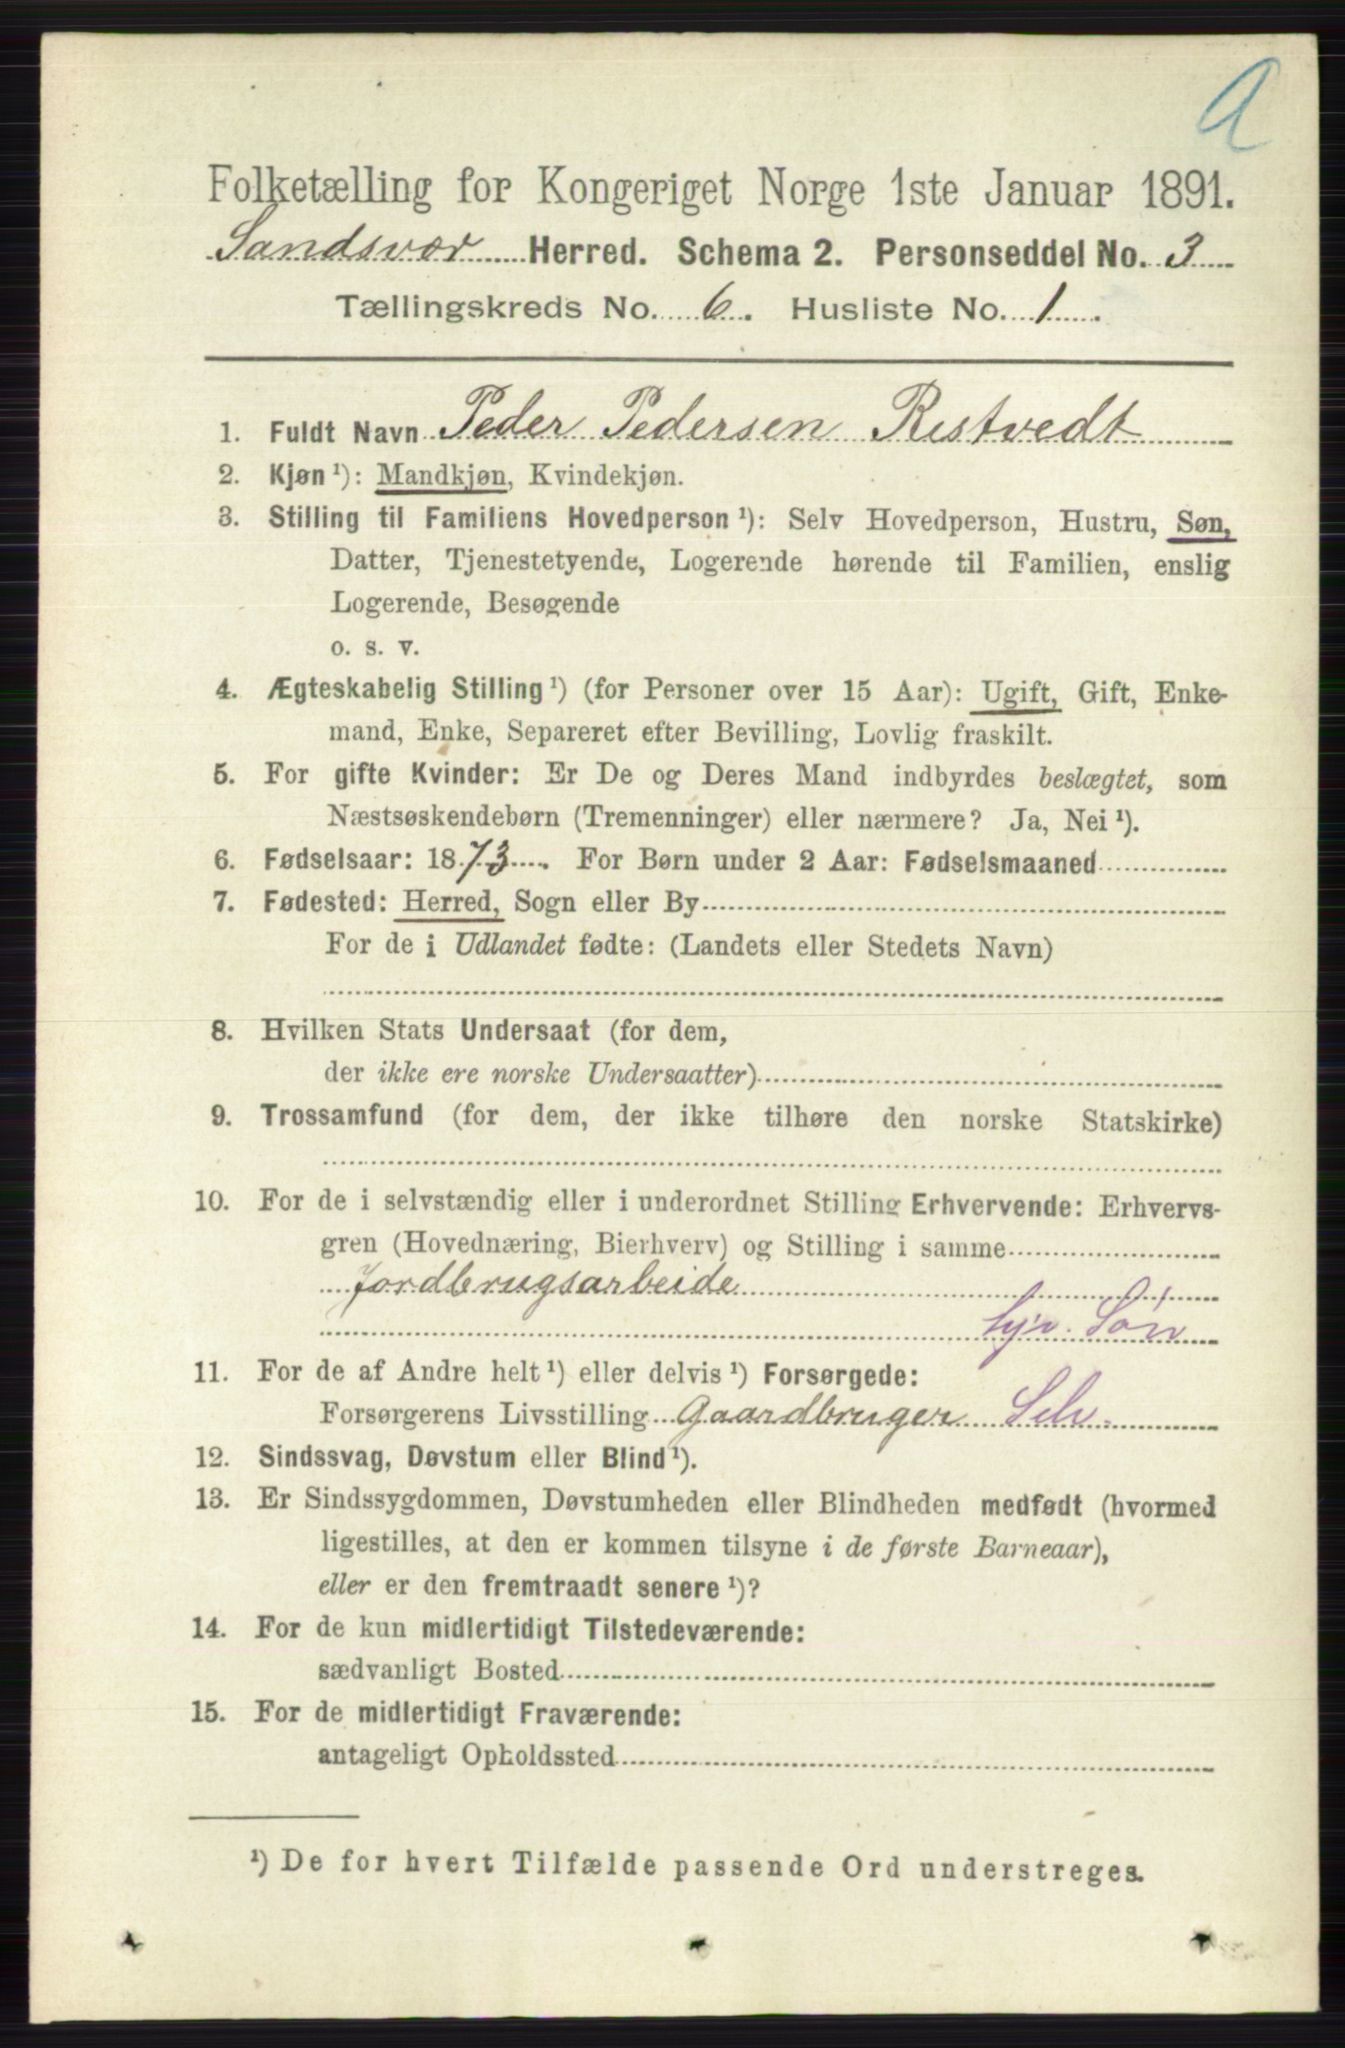 a
Folketælling for Kongeriget Norge 1ste Januar 1891.
Sandsvær Herred. Schema 2. Personseddel No. 3
Tællingskreds No. 6. Husliste No. 1.
1. Fuldt Navn Peder Pedersen Ristvedt
2. Kjøn¹): Mandkjøn, Kvindekjøn.
3. Stilling til Familiens Hovedperson¹): Selv Hovedperson, Hustru, Søn,
Datter, Tjenestetyende, Logerende hørende til Familien, enslig
Logerende, Besøgende
o. s. v.
4. Ægteskabelig Stilling¹) (for Personer over 15 Aar): Ugift, Gift, Enke-
mand, Enke, Separeret efter Bevilling, Lovlig fraskilt.
5. For gifte Kvinder: Er De og Deres Mand indbyrdes beslægtet, som
Næstsøskendebørn (Tremenninger) eller nærmere? Ja, Nei¹).
6. Fødselsaar: 1873. For Børn under 2 Aar: Fødselsmaaned
7. Fødested: Herred, Sogn eller By
For de i Udlandet fødte: (Landets eller Stedets Navn)
8. Hvilken Stats Undersaat (for dem,
der ikke ere norske Undersaatter)
9. Trossamfund (for dem, der ikke tilhøre den norske Statskirke)
10. For de i selvstændig eller i underordnet Stilling Erhvervende: Erhvervs-
gren (Hovednæring, Bierhverv) og Stilling i samme
Jordbrugsarbeide
Søn
11. For de af Andre helt¹) eller delvis¹) Forsørgede:
Forsørgerens Livsstilling Gaardbruger Selv.
12. Sindssvag, Døvstum eller Blind¹).
13. Er Sindssygdommen, Døvstumheden eller Blindheden medfødt (hvormed
ligestilles, at den er kommen tilsyne i de første Barneaar),
eller er den fremtraadt senere¹)?
14. For de kun midlertidigt Tilstedeværende:
sædvanligt Bosted
15. For de midlertidigt Fraværende:
antageligt Opholdssted
¹) De for hvert Tilfælde passende Ord understreges.